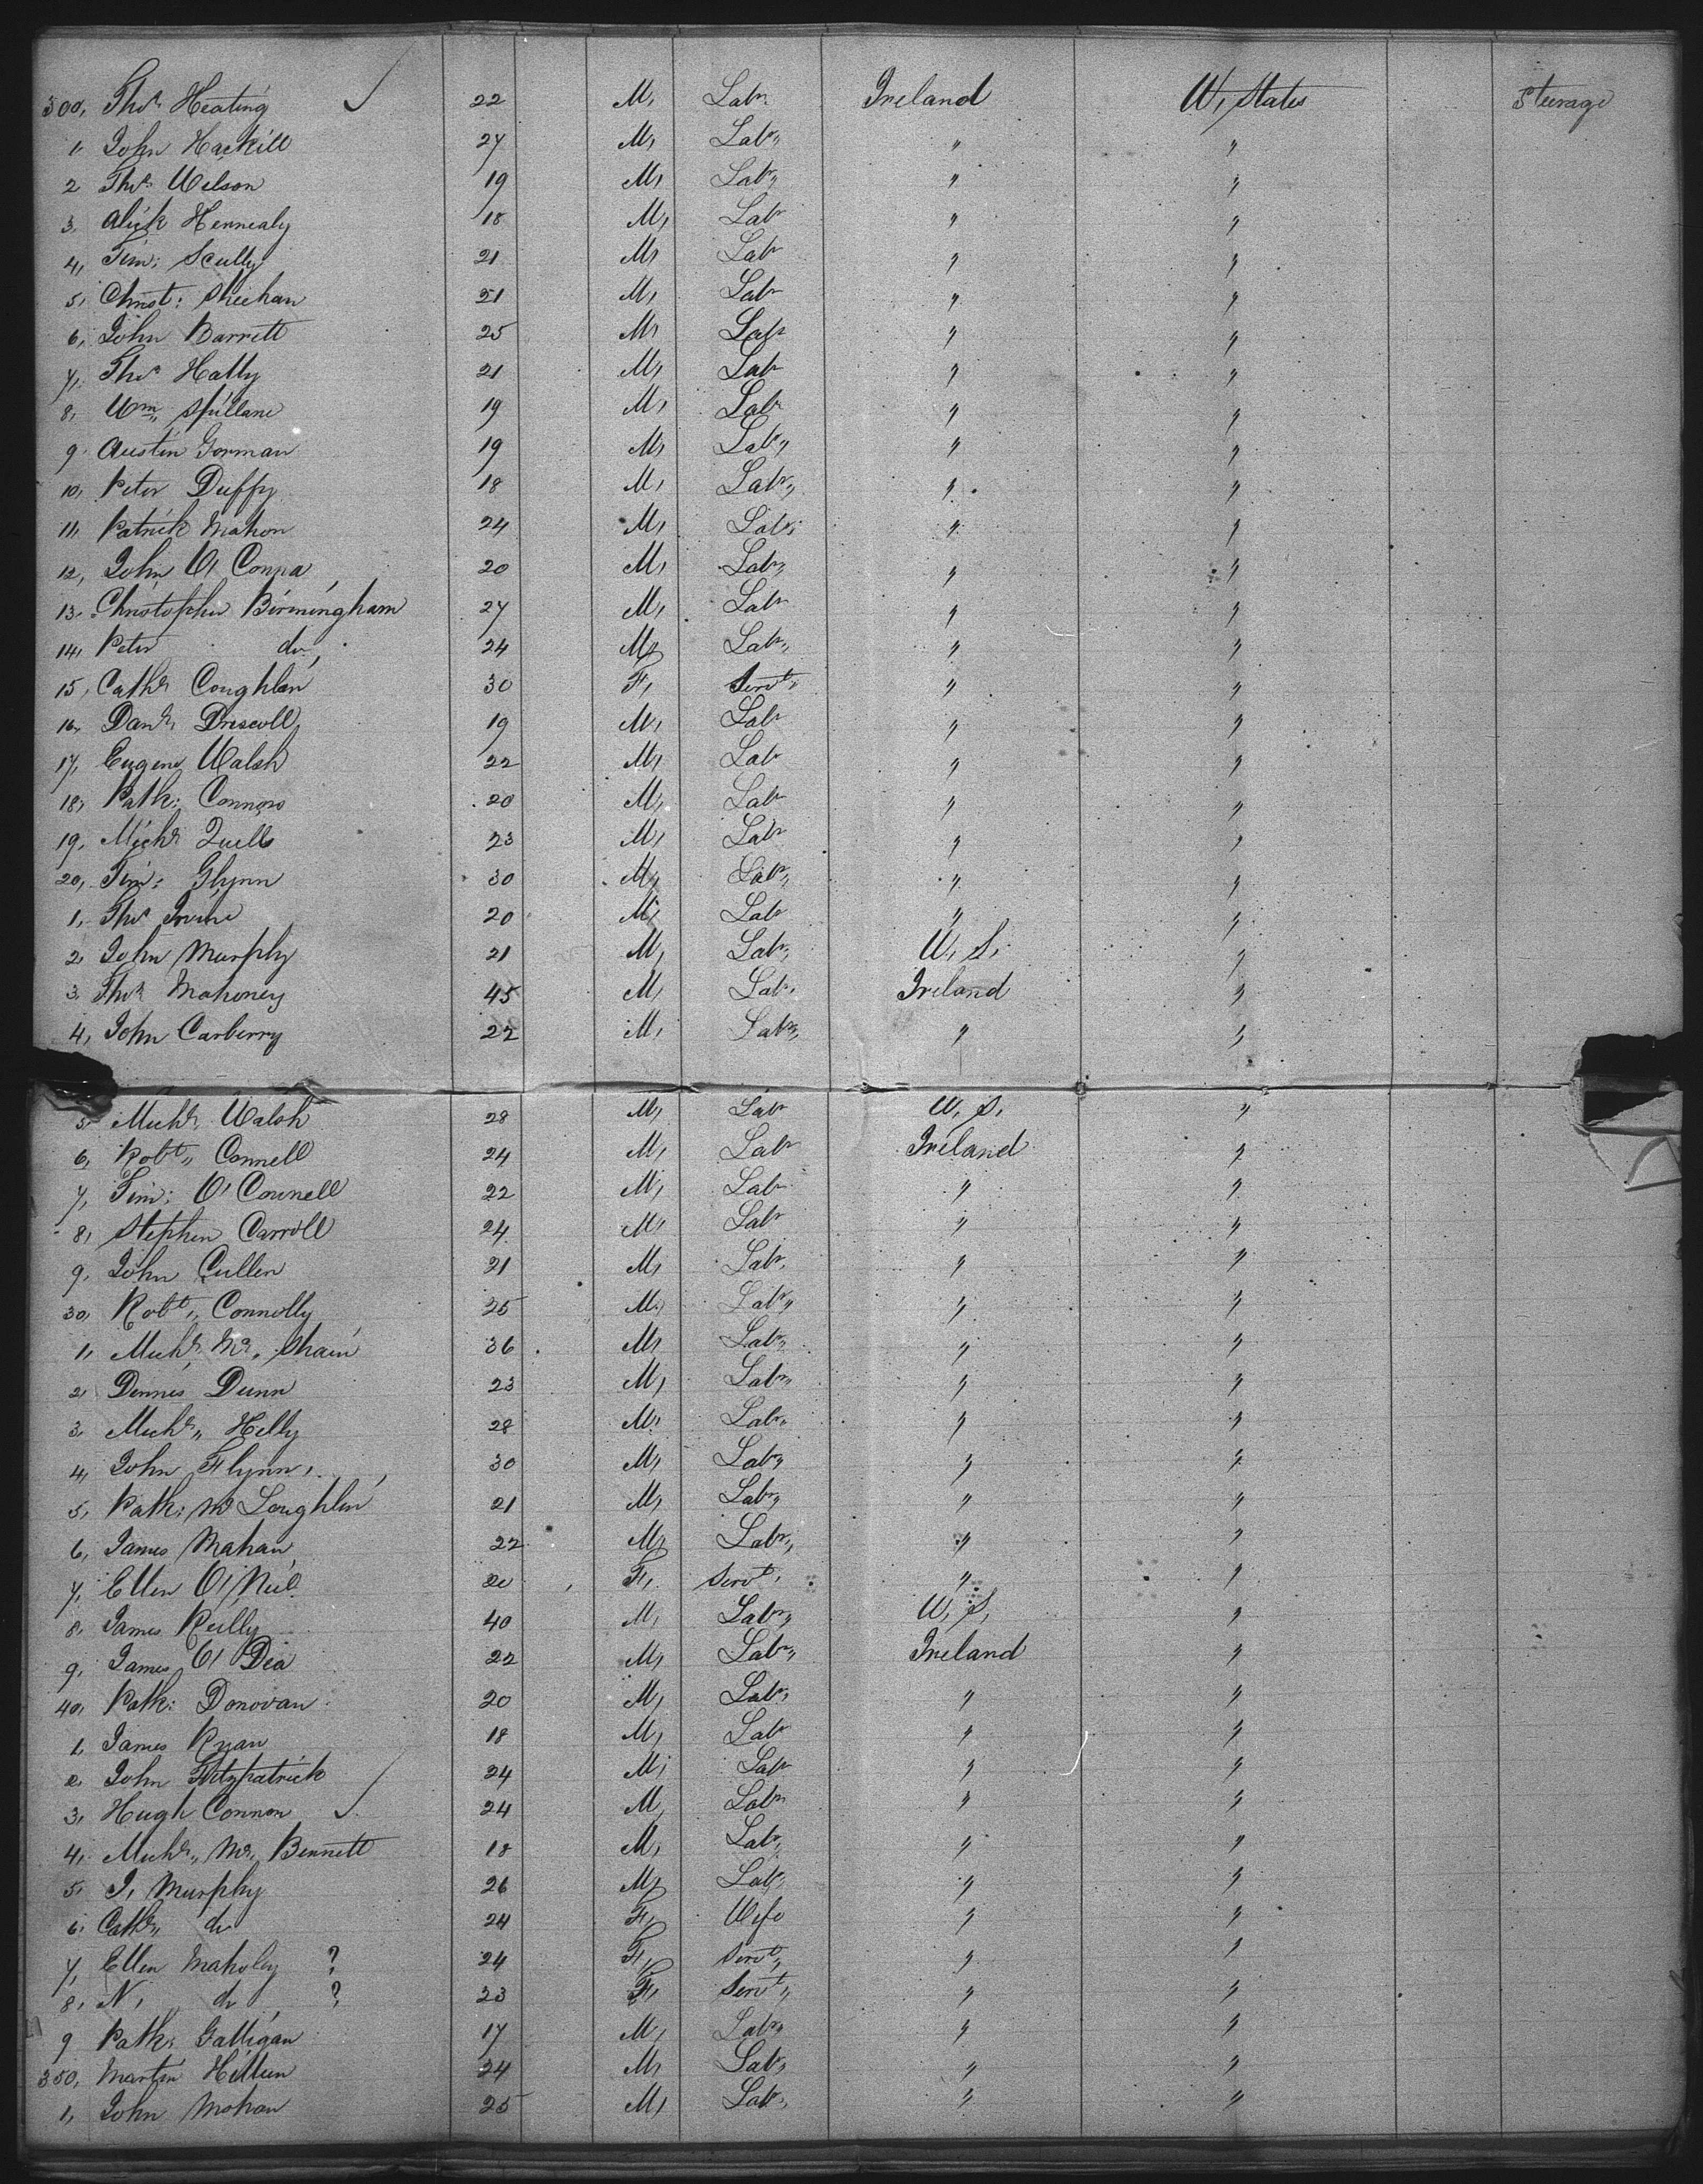 300, Thos Heating 22 M, Labr Ireland U, States Steerage
1, John Hackill 27 M, Labr " "
2 Thos Wilson 19 M, Labr " "
3, Alick Hennealy 18 M, Labr " "
4, Tim: Scully 21 M, Labr " "
5, Christ: Sheehan 21 M, Labr " "
6, John Barrett 25 M, Labr " "
7, Thos Hally 21 M, Labr " "
8, Wm Spillane 19 M, Labr " "
9, Austin Gorman 19 M, Labr " "
10, Peter Duffy 18 M, Labr " "
11, Patrick Mahon 24 M, Labr " "
12, John O'Conna 20 M, Labr " "
13, Christopher Birmingham 27 M, Labr " "
14, Peter do 24 M, Labr " "
15, Cathe Coughlan 30 F, Servt " "
16, Danl Driscoll 19 M, Labr " "
17, Eugene Walsh 22 M, Labr " "
18, Patk: Connors 20 M, Labr " "
19, Michl Quells 23 M, Labr " "
20, Tim: Glynn 30 M, Labr " "
1, Thos Irvine 20 M, Labr " "
2, John Murphy 21 M, Labr U, S, "
3, Thos Mahoney 45 M, Labr Ireland "
4, John Carberry 22 M, Labr " "
5, Michl Walsh 28 M, Labr U, S, "
6, Robt Connell 24 M, Labr Ireland "
7, Tim: O'Connell 22 M, Labr " "
8, Stephen Carroll 24 M, Labr " "
9, John Cullen 21 M, Labr " "
30, Robt Connolly 25 M, Labr " "
1, Michl Mc Shain 36 M, Labr " "
2, Dennis Dunn 23 M, Labr " "
3, Michl Helly 28 M, Labr " "
4, John Flynn 30 M, Labr " "
5, Patk: Mc Loughlin 21 M, Labr " "
6, James Mahan 22 M, Labr " "
7, Ellen O'Neil 20 F, Servt " "
8, James Reilly 40 M, Labr U, S, "
9, James O'Dea 22 M, Labr Ireland "
40, Patk: Donovan 20 M, Labr " "
1, James Ryan 18 M, Labr " "
2, John Fitzpatrick 24 M, Labr " "
3, Hugh Connon 24 M, Labr " "
4, Michl Mc Bennett 18 M, Labr " "
5, J, Murphy 26 M, Labr " "
6, Cathe do 24 F, Wife " "
7, Ellen Maholy ? 24 F, Servt " "
8, N, do ? 23 F, Servt " "
9 Patk: Galligan 17 M, Labr " "
350, Martin Hilleen 24 M, Labr " "
1, John Mohan 25 M, Labr " "